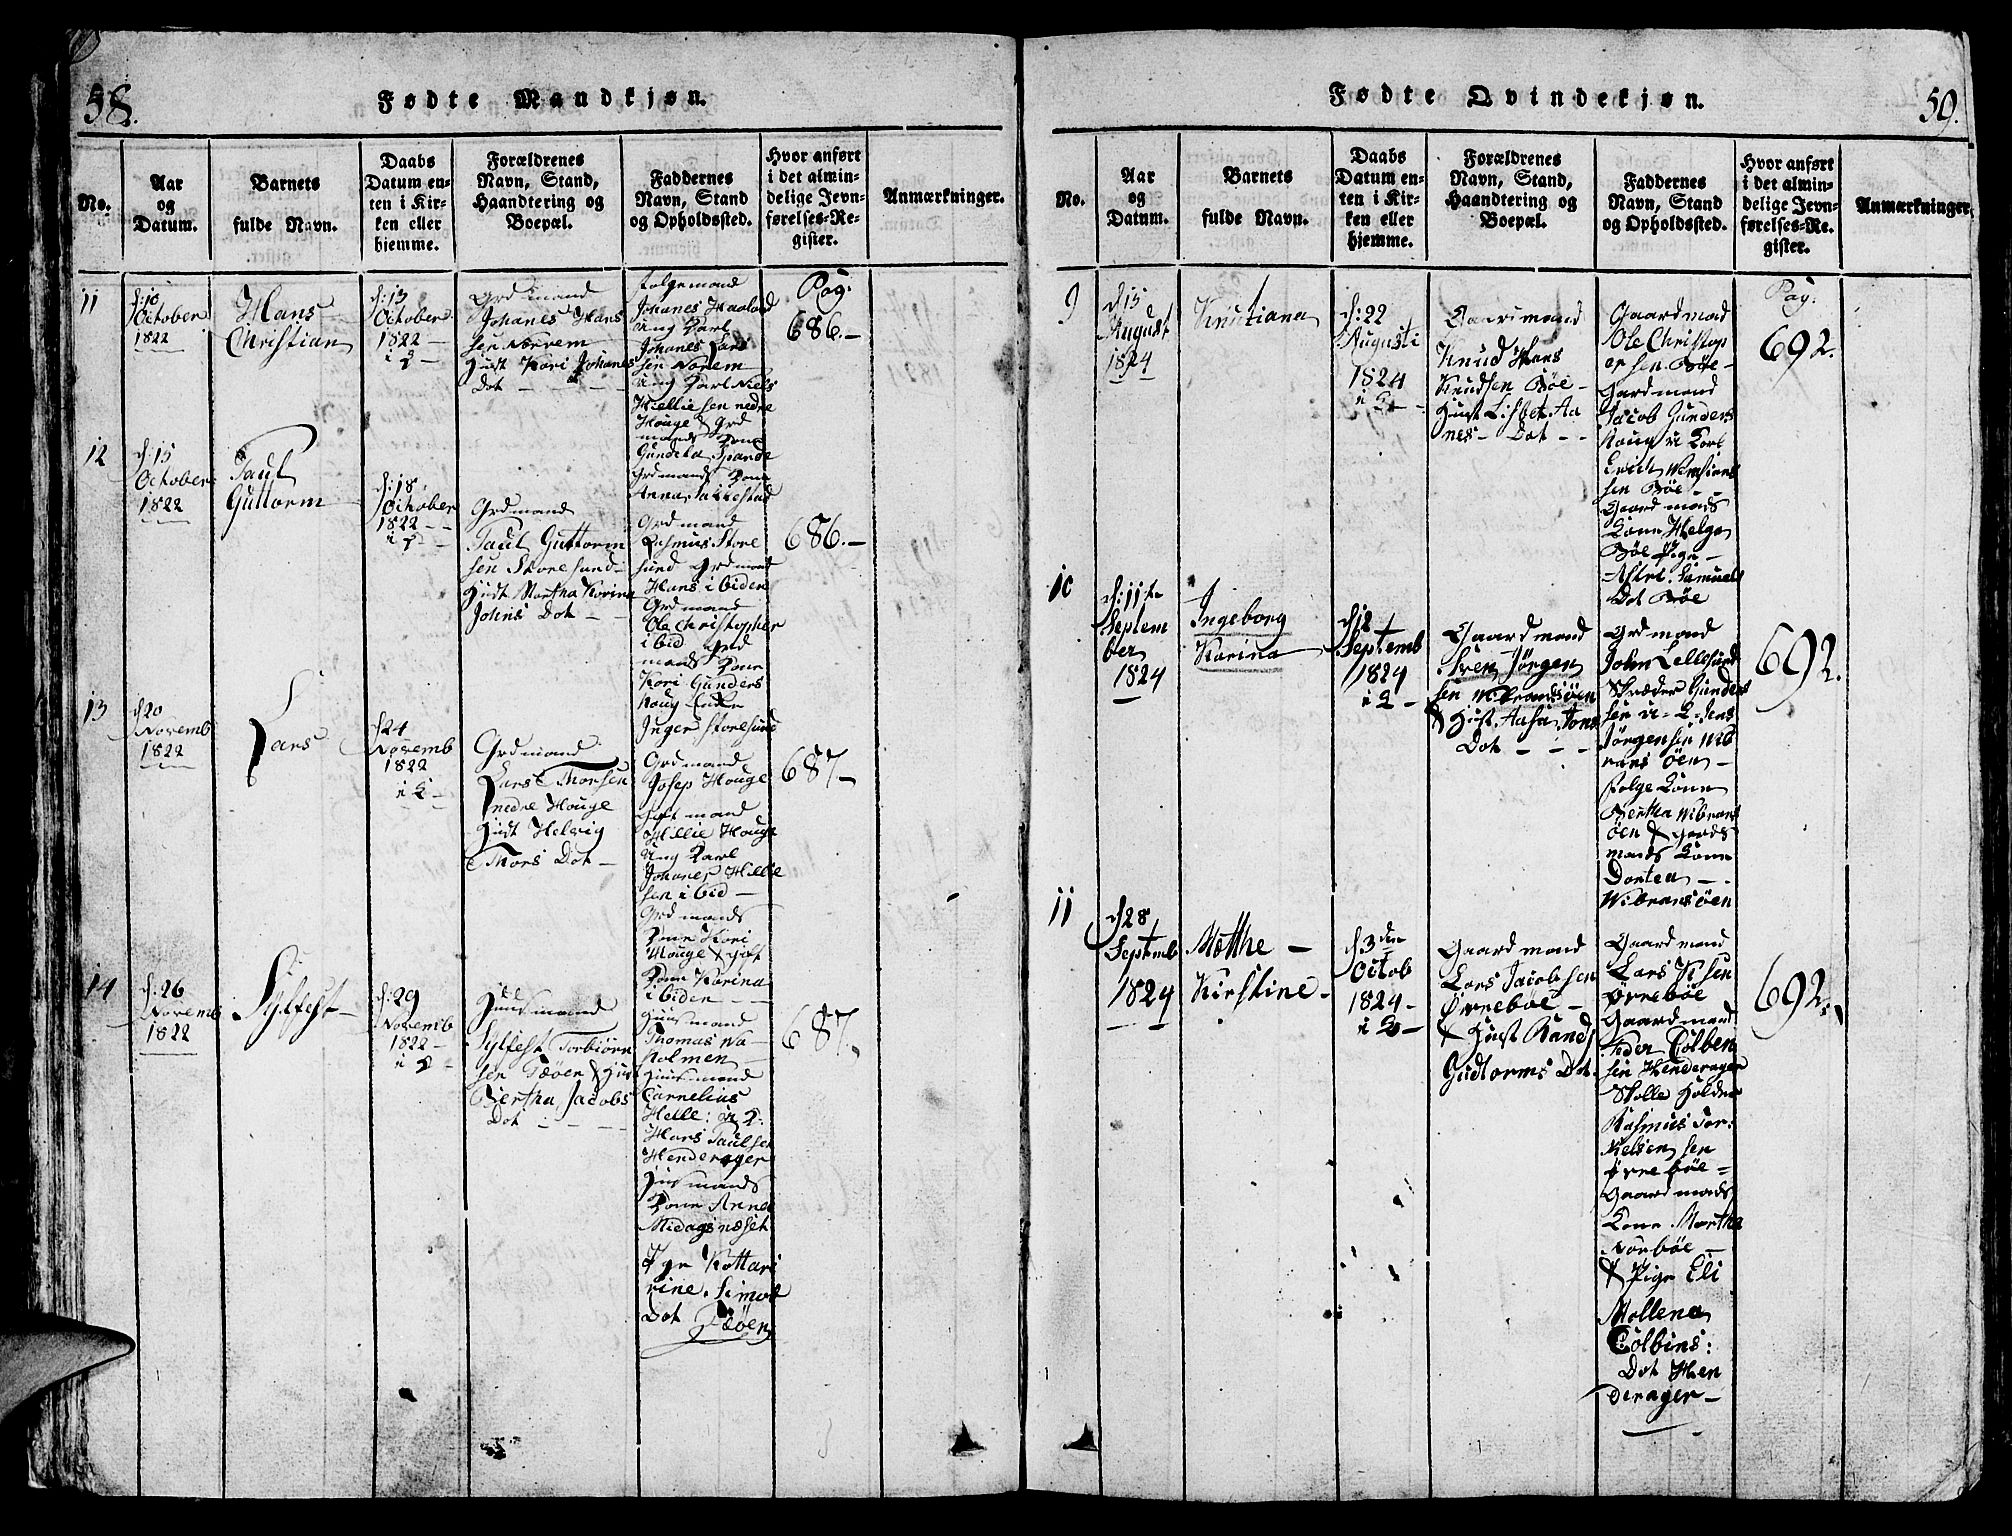 58.
Fødte Mandkjøn.
No.
Aar
og
Datum.
Barnets
fulde Navn.
Daabs
Datum en-
ten i Kir-
ken eller
hjemme.
Forældrenes
Navn, Stand,
Haandtering og
Boepæl.
Faddernes
Navn, Stand
og Opholdssted.
Hvor anført
i det almin-
delige Jevn-
førelses-Re-
gister.
Anmærkninger.
11
d: 10
October
1822
Hans
Christian
d: 13
October
1822 –
Grdmand
Johanes Hans
sen Norem
Hust Kari Johanes
Dot
Johanes
Ung Karl
Johanes Lars
sen Norem
Ung Karl Niels
Hellie sen nedre
Houge & Grd
mands Kone
Gundela
Grdmands Kone
Anna
Pag:
686.–
12
d: 15
October
1822
Paul
Guttorm
d: 18
October
1822 –
Grdmand
Paul Guttorm
sen Storesund
Hust Martha Korina
Johns Dot –
Grdmand
Rasmus Store
sund Grdmand
Hans ibiden
Grdmand
Ole Christopher
ibid Grd
mands Kone
Kari Gunders
Houg
Inger Storesund
686.–
13
d 20
Novemb
1822
Lars
d 24
Novemb
1822
Grdmand
Lars Thorsen
nedre Houge
Hust Helvig
Thors Dot –
Grdmand
Josep Houge
mand
Hellie Houge
Ung Karl
Johanes Hellie
sen ibid –
Grdmands
Kone Kari
Houge &
Kone Karina
ibiden –
687–
14
d: 26
Novemb
1822
Sylfest –
d: 29
Novemb
1822 –
Huusmand
Sylfest Torbiørn
sen Fæøen & Hust
Bertha Jacobs
Dot – – – –
Huusmand
Thomas
Holmen –
Huusmand
Cornelius
Hans Paulsen
Henderager
Huusmands
Kone Anne
Midagsnæset
Pige Kattari
rine Simos
Dot Fæøen
687.
59.
Fødte Qvindekjøn.
No.
Aar
og
Datum.
Barnets
fulde Navn.
Daabs
Datum en-
ten i Kir-
ken eller
hjemme.
Forældrenes
Navn, Stand,
Haandtering og
Boepæl.
Faddernes
Navn, Stand
og Opholdssted.
Hvor anført
i det almin-
delige Jevn-
førelses-Re-
gister.
Anmærkninger.
9
d 15
August
1824
Knutiana
d: 22
Augusti
1824
Gaardmand
Knud Hans
Knudsen Bøe –
Hust Lisbet Aa
nes – Dot – –
Gaardmand
Ole Christop
er sen Bøe –
Gardmand
Jacob Gunders
Houg u Karl
Erich
sen Bøe –
Gaardmands
Kone Helga
Bøe Pige –
Astri Samuels
Dot Bøe
Pag:
692.
10
d: 11te
Septem
ber
1824
Ingeborg
Karina
d 12
Septemb
1824
Gaardmand
Sven Jørgen
sen Wibrandsøen
& Hust. Aasa Jons
Dot – – –
Grdmand
John Lellesund
Skræder Gunders
sen u – K – Jens
Jørgensen Wib
rans Øen –
Kone
Bertha Wibrans
øen & Gards
mands Kone
Dortea –
Wibransøen
692.
11
d 28
Septemb
1824
Matthe –
Kirstine –
d 3den
Octob
1824 –
Gaardmand
Lars Jacobsen
Ørrebøe –
& Hust Rands
Gudtorms Dot.
Gaardmand
Lars
Ørrebøe
Gaardmand
Peder Colben
sen Henderager
Skolle Holder
Rasmus Tor-
kelsen sen
Ørrebøe –
Gaardmands
Kone Martha
& Pige Eli
Mallena
Colbins:
Dot Hen
derager –
692.